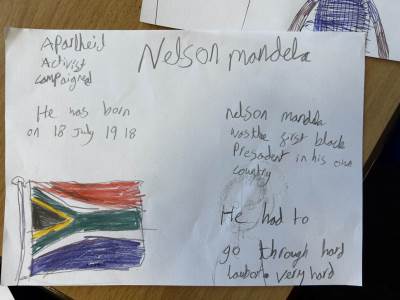 Nelson mandela
Apartheid
Activist
campaigned
He was born
on 18 July 1918
nelson mandela
was the first black
President in his own
country
He had to
go through hard
very hard